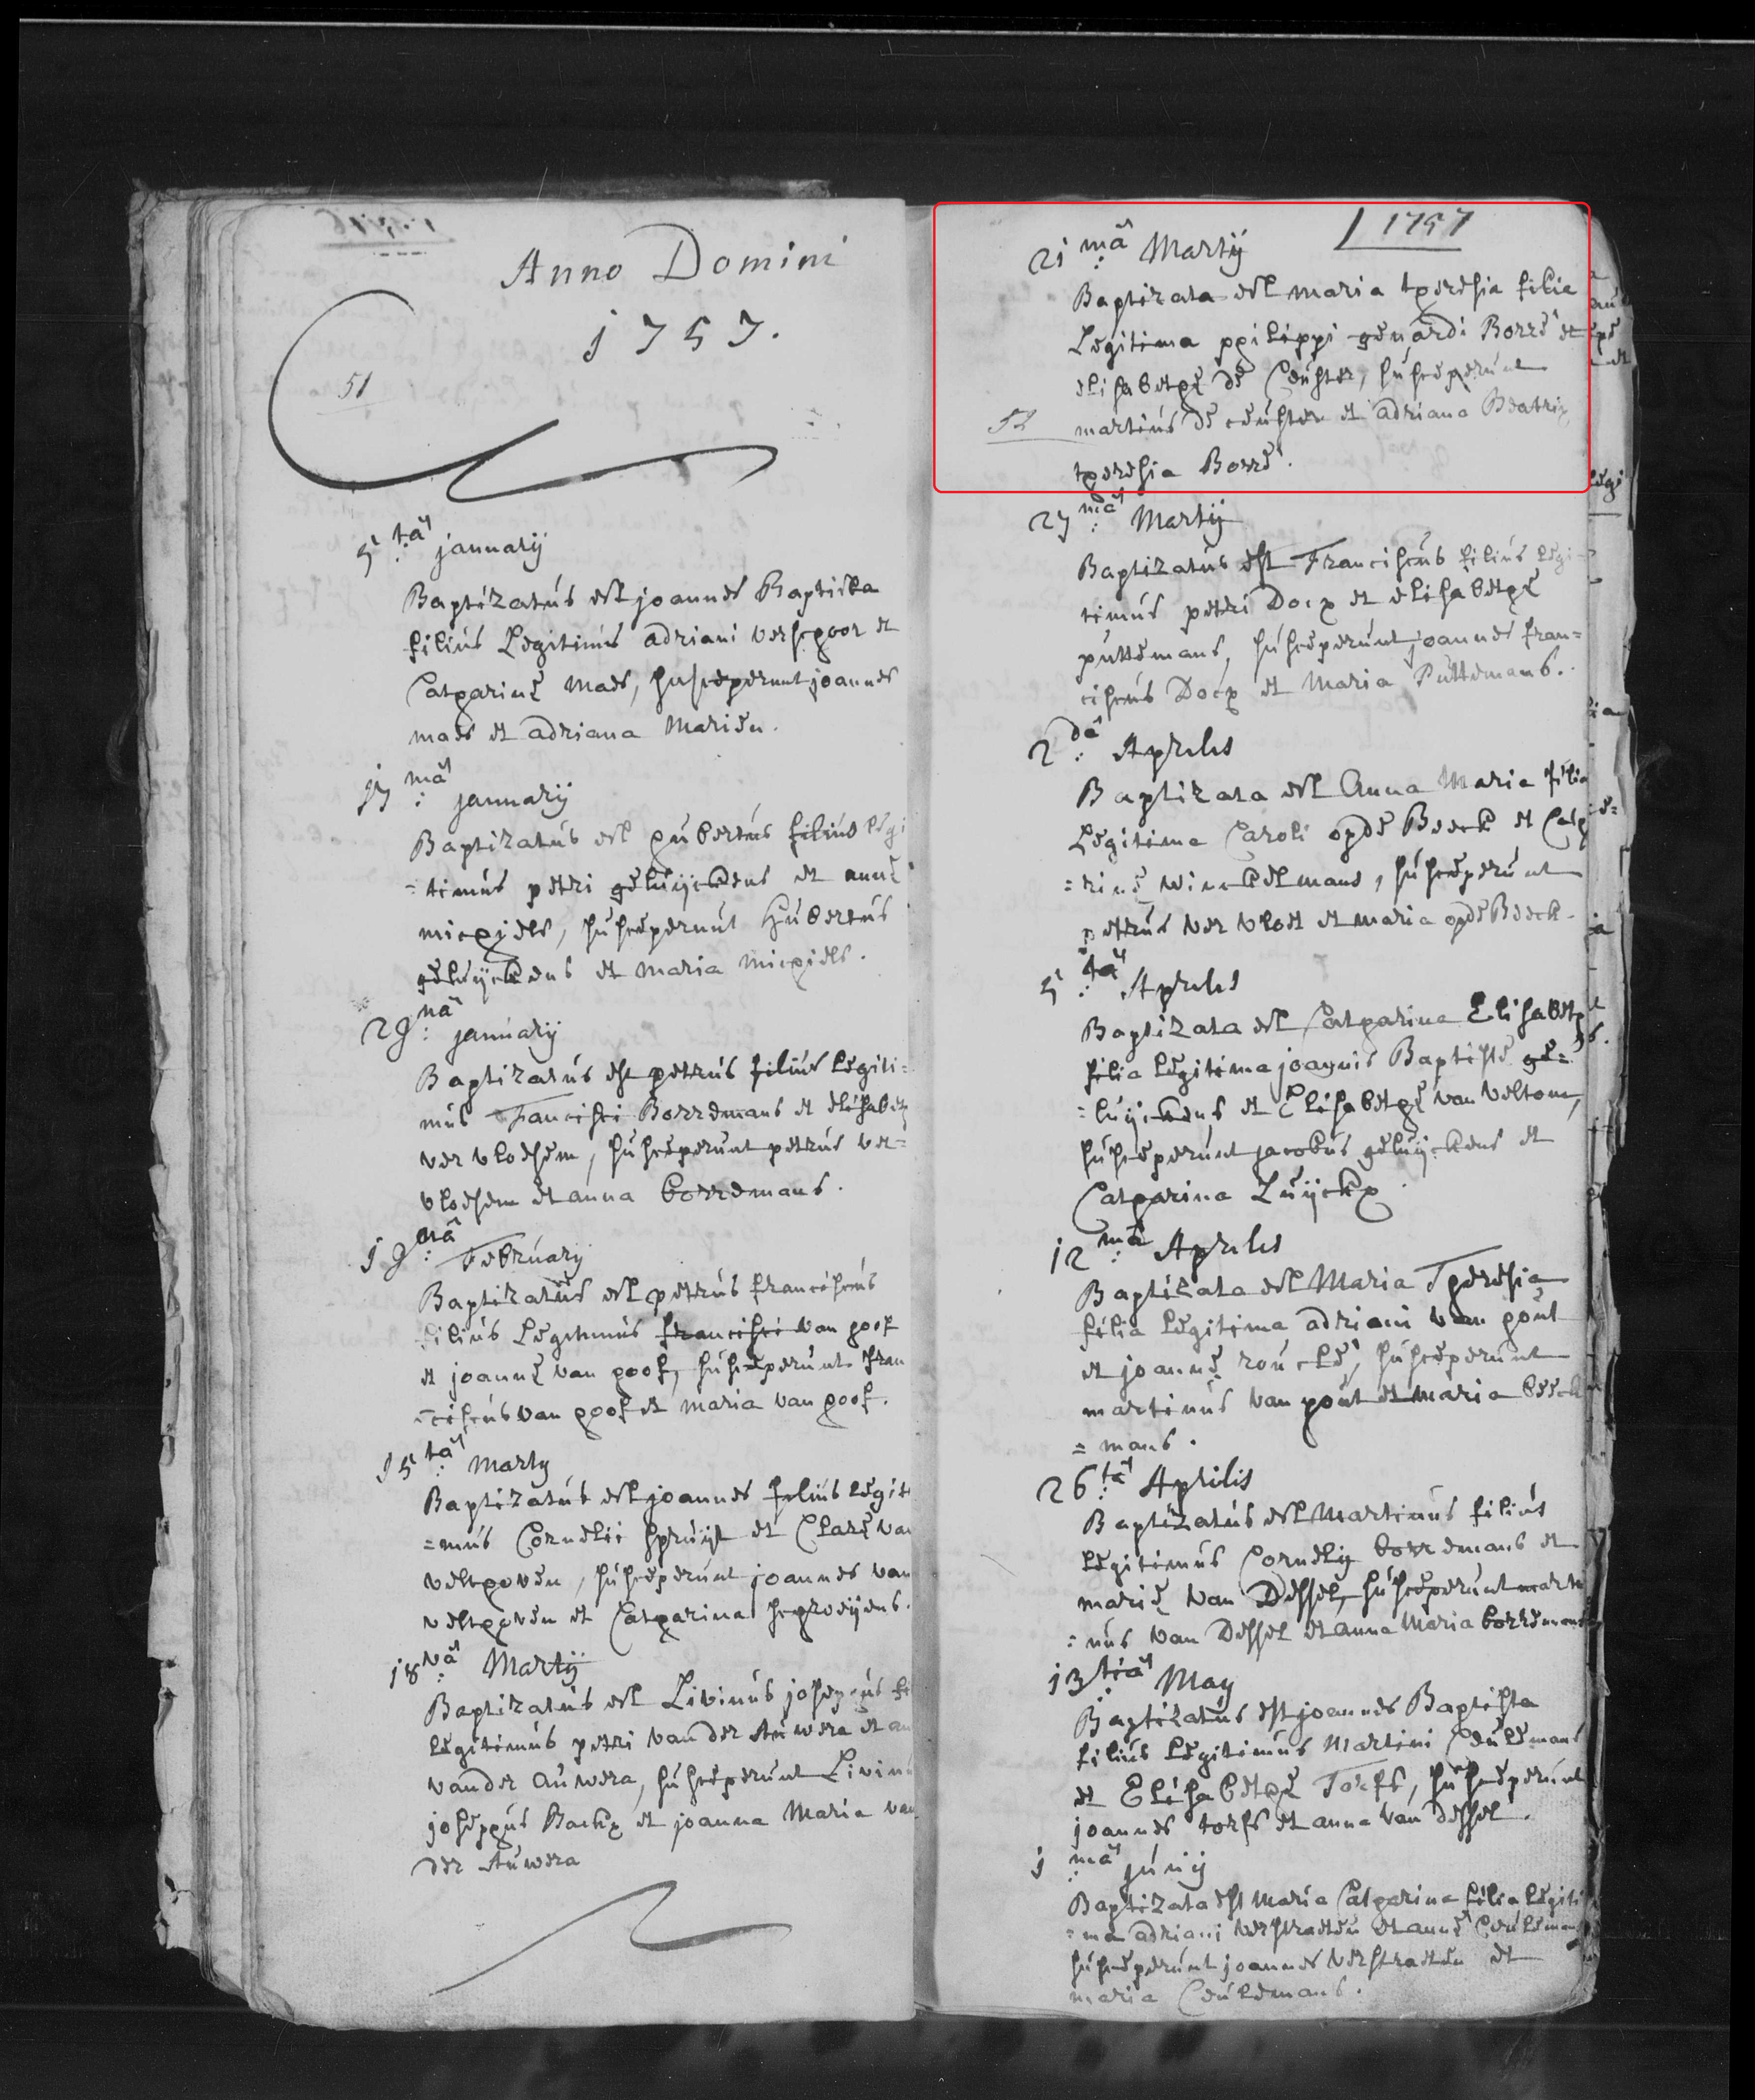 Anno Domini
1757.
51
5:tâ january
Baptizatús est joannes Baptista
filiús Legitimús adriani verhoor et
Catharinę maes, súscéperunt joannes
maes et adriana Mariën.
17:mâ january
Baptizatús est húbertús filiús legi
=timús petri gelúÿckens et annę
michiels, súscéperunt Húbertús
gelúÿckens et maria michiels.
29:nâ january
Baptizatús est petrús filiús legiti=
mús Fancisci Borremans et elisabeth
ver vloesem, súscéperúnt petrús ver=
vloesem et anna borremans.
19:nâ February
Baptizatús est petrús franciscús
filiús Legitimús francisci van hoof
et joannę van hoof, súscéperúnt fran
=ciscús van hoof et maria van hoof.
15:tâ marty
Baptizatús est joannes filiús legiti
=mús Cornelii sprúÿt et Clarę van
velthoven, súscéperúnt joannes van
velthoven et Catharina schroeÿens.
18:vâ Martÿ
Baptizatús est Livinús josephús fi
legitimús petri van der Aúwera et an
van der aúwera, súscéperúnt Livinú
josephús Backx et joanna Maria van
der Aúwera
1757
21:mâ Martÿ
Baptizata est maria theresia filia
Legitima philippi genardi Borré et
elisabethę de Ceúster, súscéperúnt
52 martinús de ceúster et adriana Beatrix
theresia Borré.
27:mâ Martÿ
Baptizatús est Franciscús filiús legi=
timús petri Docx et elisabethę
púttemans, súscéperúnt joannes fran=
ciscús Docx et Maria Púttemans.
2:dâ Aprilis
Baptizata est Anna Maria filia
Legitima Caroli op de Beeck et Cath
=rinę winckelmans, súscéperúnt
petrús ver vloet et maria op de Beeck.
5:tâ Aprilis
Baptizata est Catharina Elisabeth
filia legitima joannis Baptistę ge=
=lúyckens et Elisabethę van veltom,
súscéperúnt jacobús gelúÿckens et
Catharina Lúÿckx
12:mâ Aprilis
Baptizata est Maria Theresia
filia legitima adriani van hoút
et joannę roúcké, súscéperúnt
martinús van hoút et maria beeck
=mans.
26:tâ Aprilis
Baptizatús est Martinús filiús
legitimús Cornely borremans et
marię van Dessel, súscéperúnt marti
=nús van Dessel et anna Maria borremans
13:tiâ May
Baptizatús est joannes Baptista
filiús legitimús Martini Ceúlemans
et Elisabethę Torfs, súscéperúnt
joannes torfs et anna van dessel.
1:mâ júnÿ
Baptizata est Maria Catharina filia legiti
=ma adriani verstraeten et annę Ceúlemans
súscéperúnt joannes verstraeten et
maria Ceúlemans.